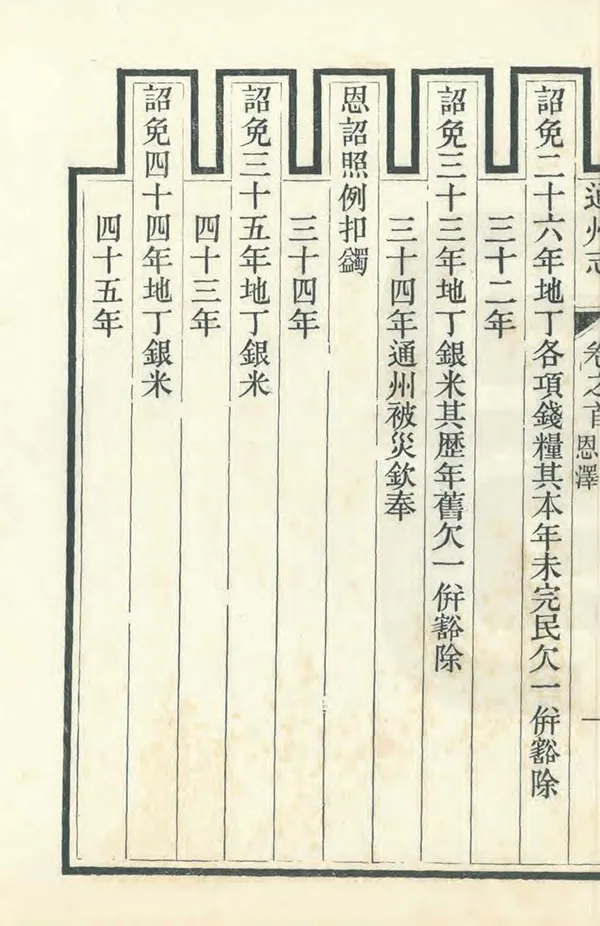 通州志
卷之首 恩澤
詔免二十六年地丁各項錢糧其本年未完民欠一併豁除
三十二年
詔免三十三年地丁銀米其歷年舊欠一併豁除
三十四年通州被災欽奉
恩詔照例扣蠲
三十四年
詔免三十五年地丁銀米
四十三年
詔免四十四年地丁銀米
四十五年